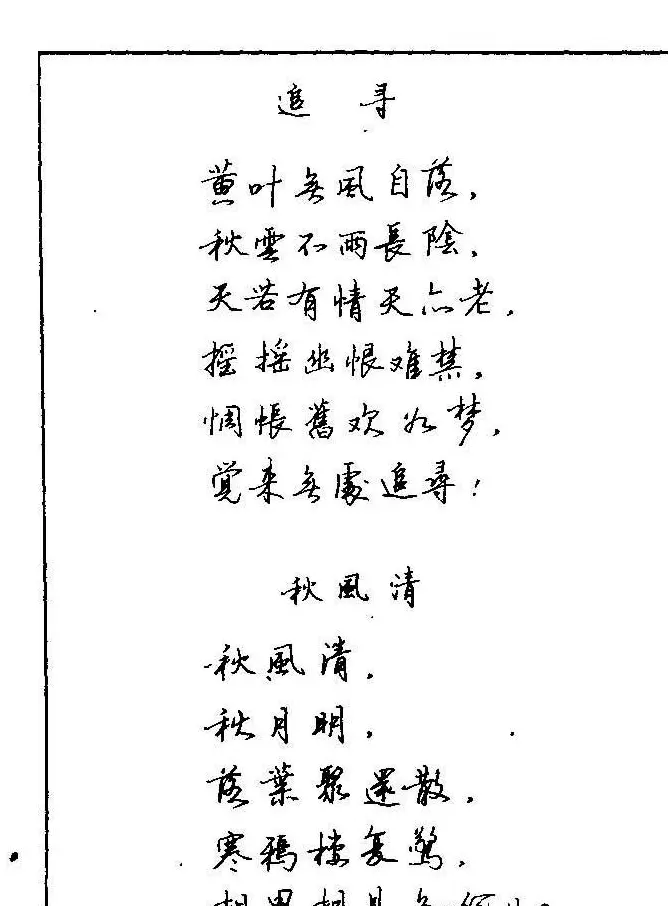 追 寻
黄叶无風自落,
秋雲不雨長陰,
天若有情天亦老,
摇摇幽恨难禁,
惆悵舊欢如梦,
觉来无處追尋!
秋風清
秋風清,
秋月明,
落葉聚還散,
寒鸦棲复驚,
相思相見